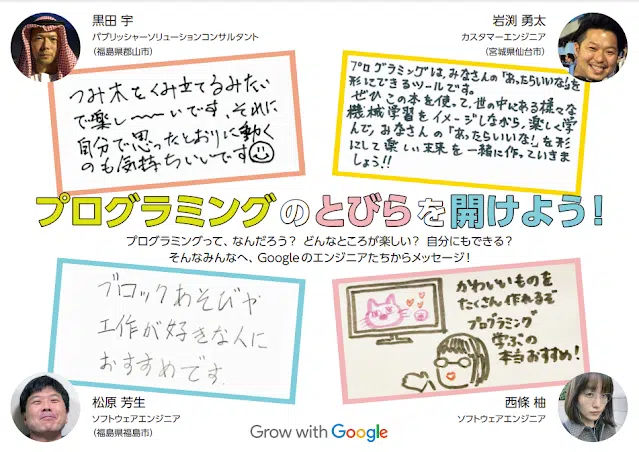 黒田 宇
パブリッシャーソリューションコンサルタント
（福島県郡山市）
岩渕 勇太
カスタマーエンジニア
（宮城県仙台市）
つみ木をくみ立てるみたい
で楽し〜〜いです、それに
自分で思ったとおりに動く
のも気持ちいいです
プログラミングは、みなさんの「あったらいいな！」を
形にできるツールです。
ぜひこの本を使って、世の中にある様々な
機械学習をイメージしながら、楽しく学
んで、みなさんの「あったらいいな！」を形
にして楽しい未来を一緒に作っていきま
しょう！！
プログラミングのとびらを開けよう！
プログラミングって、なんだろう？ どんなところが楽しい？ 自分にもできる？
そんなみんなへ、Googleのエンジニアたちからメッセージ！
ブロックあそびや
工作が好きな人に
おすすめです。
かわいいものを
たくさん作れるぞ
プログラミング
学ぶの
本当おすすめ！
松原 芳生
ソフトウェアエンジニア
（福島県福島市）
西條 柚
ソフトウェアエンジニア
Grow with Google